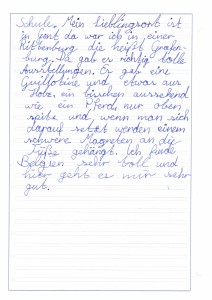 Schule. Mein Lieblingsort ist
in Gent da war ich in einer
Ritterburg die heißt Grafen-
burg. Da gab es richtig tolle
Ausstellungen. Es gab eine
Guillotine und etwas aus
Holz, ein bisschen aussehend
wie ein Pferd, nur oben
spitz und, wenn man sich
darauf setzt werden einem
schwere Magneten an die
Füße gehängt. Ich finde
Belgien sehr toll und
hier geht es mir sehr
gut.